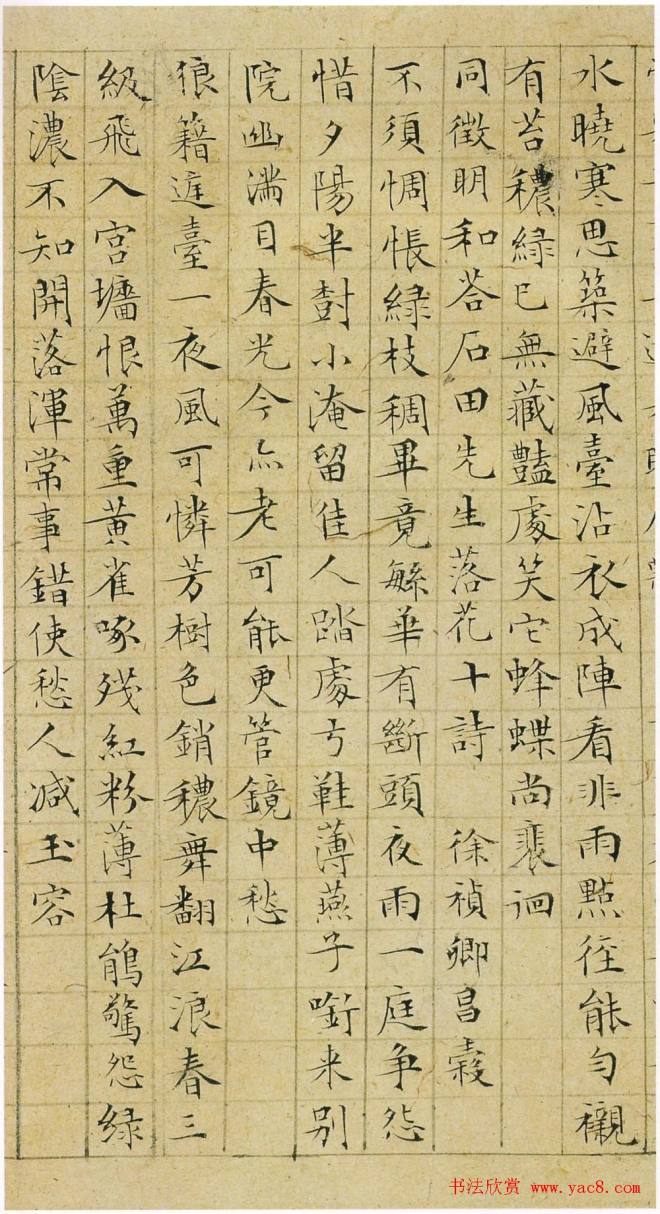 水曉寒思築避風臺沾衣成陣看非雨點徑能勻襯
有苔穠綠已無藏豔處笑它蜂蝶尚裴徊
同徵明和荅石田先生落花十詩 徐禎卿昌穀
不須惆悵綠枝稠畢竟緐華有斷頭夜雨一庭爭怨
惜夕陽半樹小淹留佳人踏處弓鞋薄燕子銜来别
院幽滿目春光今亦老可能更管鏡中愁
狼籍遅臺一夜風可憐芳樹色銷穠舞翻江浪春三
級飛入宮墻恨萬重黃雀啄殘紅粉薄杜鵑驚怨緑
陰濃不知開落渾常事錯使愁人减玉容
书法欣赏 www.yac8.com